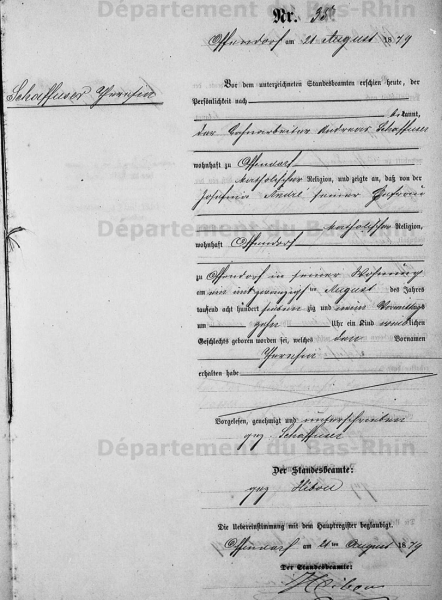 Département du Bas-Rhin
Nr. 35
Offendorf am 21 August 1879
Vor dem unterzeichneten Standesbeamten erschien heute, der
Persönlichkeit nach
bekannt,
der Andreas Schaffner
wohnhaft zu Offendorf
katholischer Religion, und zeigte an, daß von der
Josefina André seiner Ehefrau
katholischer Religion,
wohnhaft Offendorf
Département du Bas-Rhin
zu Offendorf in seiner Wohnung
am ein und zwanzigsten August des Jahres
tausend acht hundert siebenzig und neun Vormittags
um zehn Uhr ein Kind weiblichen
Geschlechts geboren worden sei, welches den Vornamen
erhalten habe
Vorgelesen, genehmigt und unterschrieben
gez Schaffner
Département du Bas-Rhin
Der Standesbeamte:
gez
Die Uebereinstimmung mit dem Hauptregister beglaubigt.
Offendorf am 21ten August 1879
Der Standesbeamte: